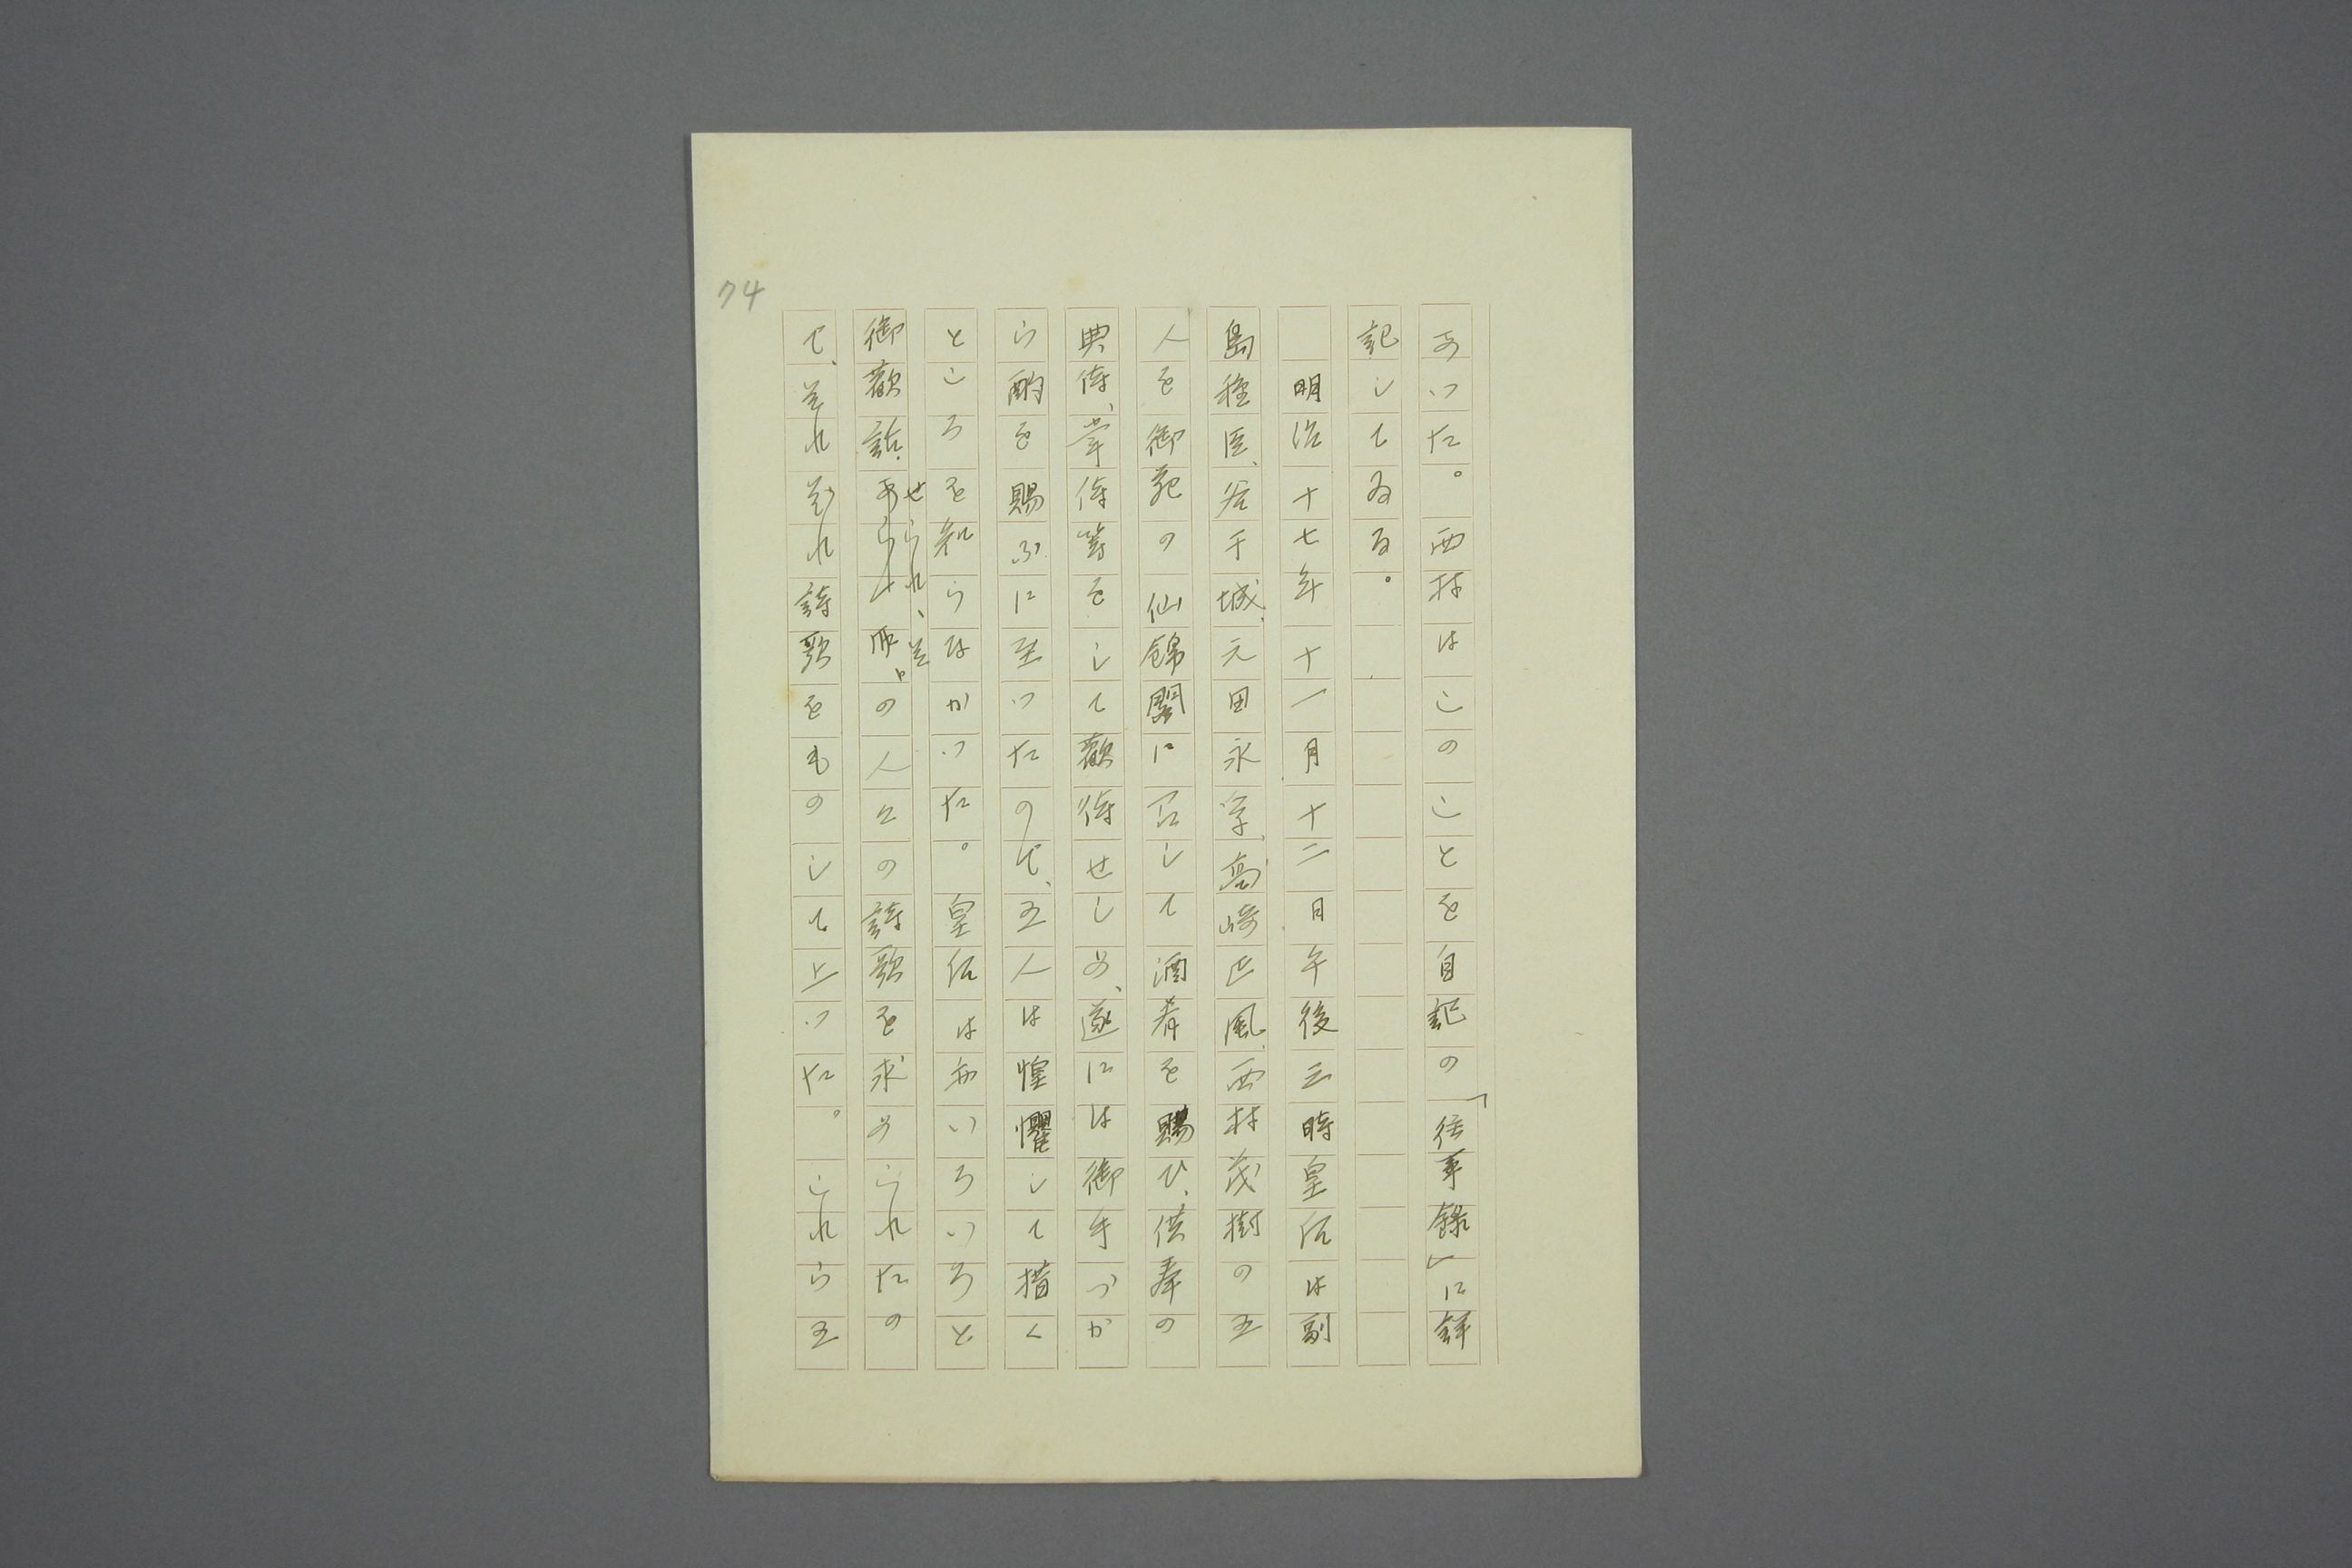 74
あつた。西村はこのことを自記の「往事録」に詳
記してゐる。
明治十七年十一月十二日午後三時皇后は副
島種臣、谷干城、元田永孚、高崎正風、西村茂樹の五
人を御苑の仙錦閣に召して酒肴を賜ひ、供奉の
典侍、掌侍等をして歓待せしめ、遂には御手づか
ら酌を賜ふに至つたので、五人は惶懼して措く
ところを知らなかつた。皇后は尚いろいろと
せられ、並
御歓話、あらせ所々の人々の詩歌を求められたの
で、それぞれ詩歌をものして上つた。これら五